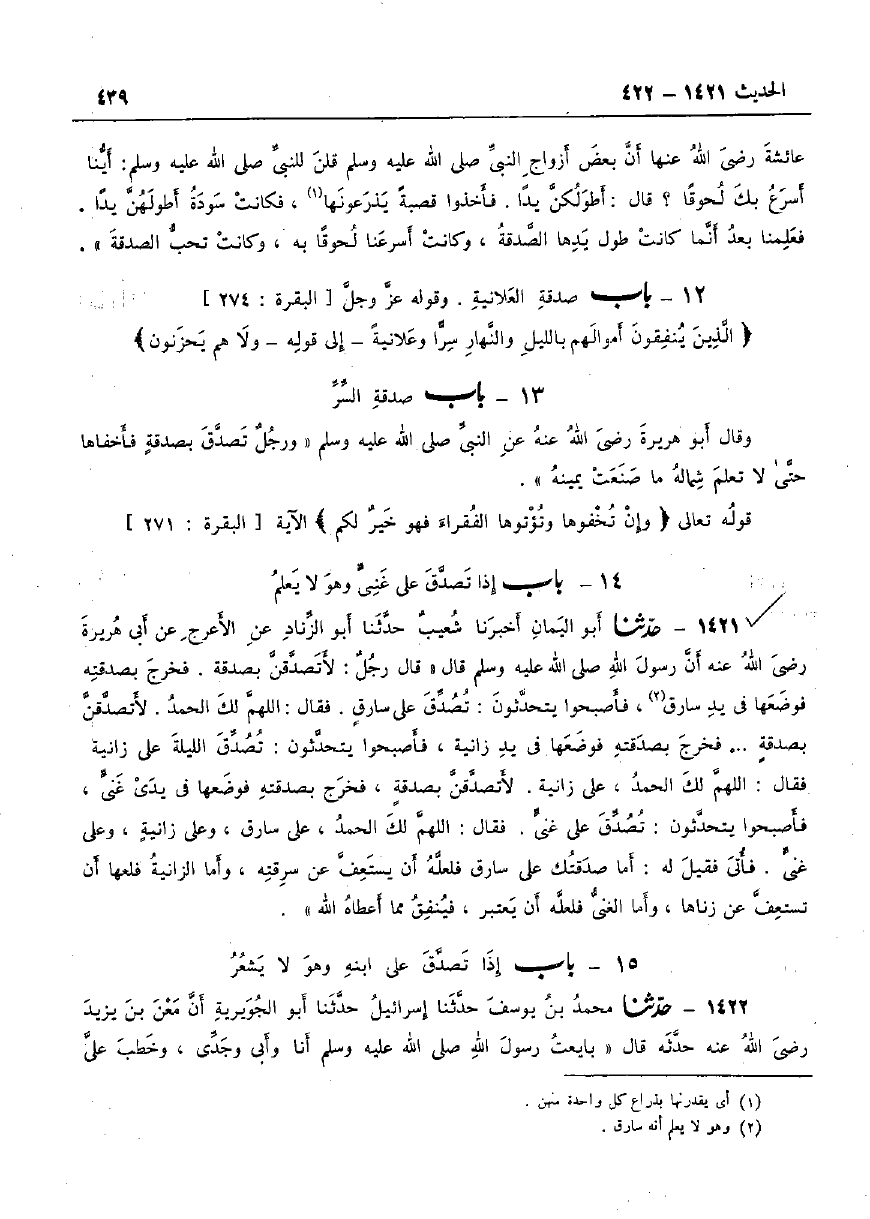 الحديث ١٤٢١ – ٤٢٢
٤٣٩
عائشةَ رضىَ اللهُ عنها أنَّ بعضَ أزواجِ النبىِّ صلى الله عليه وسلم قلنَ للنبىِّ صلى الله عليه وسلم: أيُّنا
أسرَعُ بكَ لُحوقًا ؟ قال : أطوَلُكنَّ يدًا . فأخذوا قصبةً يَذرَعونَها(١) ، فكانتْ سَودَةُ أطولَهُنَّ يدًا .
فعَلِمنا بعدُ أنَّما كانتْ طول يَدِها الصَّدقةُ ، وكانتْ أسرعَنا لُحوقًا به ، وكانتْ تحبُّ الصدقةَ » .
١٢ – باب صدقةِ العَلانيةِ . وقوله عزَّ وجلَّ [ البقرة : ٢٧٤ ]
﴿ الَّذِينَ يُنفِقونَ أموالَهم بالليلِ والنَّهارِ سِرًّا وعَلانيةً – إلى قولِه – ولَا هم يَحزَنون ﴾
١٣ – باب صدقةِ السِّرِّ
وقال أبو هريرةَ رضىَ اللهُ عنهُ عنِ النبىِّ صلى الله عليه وسلم « ورجُلٌ تَصدَّقَ بصدقةٍ فأخفاها
حتَّىٰ لا تعلمَ شِمالهُ ما صَنَعَتْ يمينهُ » .
قولُه تعالى ﴿ وإنْ تُخْفوها وتُؤْتوها الفُقراءَ فهو خَيرٌ لكم ﴾ الآية [ البقرة : ٢٧١ ]
١٤ – باب إذا تَصدَّقَ على غَنِىٍّ وهوَ لا يَعلمُ
١٤٢١ – حدّثنا أبو اليَمانِ أخبرَنا شُعيبٌ حدَّثَنا أبو الزِّنادِ عنِ الأعرجِ عن أبى هُريرةَ
رضىَ اللهُ عنه أنَّ رسولَ اللهِ صلى الله عليه وسلم قال « قال رجُلٌ : لأتَصدَّقنَّ بصدقة . فخرجَ بصدقتِه
فوضَعَها فى يدِ سارق(٢) ، فأصبحوا يتحدَّثونَ : تُصُدِّقَ على سارقٍ . فقال : اللهمَّ لكَ الحمدُ . لأتصدَّقنَّ
بصدقةٍ ... فخرجَ بصدَقتهِ فوضَعَها فى يدِ زانية ، فأصبحوا يتحدَّثون : تُصُدِّقَ الليلةَ على زانية
فقال : اللهمَّ لكَ الحمدُ ، على زانية . لأتصدَّقنَّ بصدقةٍ ، فخرَج بصدقتهِ فوضعَها فى يدَىْ غَنىٍّ ،
فأصبحوا يتحدَّثون : تُصُدِّقَ على غنىٍّ . فقال : اللهمَّ لكَ الحمدُ ، على سارق ، وعلى زانيةٍ ، وعلى
غنىٍّ . فأُتىَ فقيلَ له : أما صدَقتُك على سارق فلعلَّهُ أن يستَعِفَّ عن سرِقتِه ، وأما الزانيةُ فلعها أن
تستعِفَّ عن زناها ، وأما الغنىُّ فلعلَّه أن يَعتبر ، فيُنفِقُ مما أعطاهُ الله » .
١٥ – باب إذَا تَصدَّقَ على ابنهِ وهوَ لا يَشعُرُ
١٤٢٢ – حدّثنا محمدُ بنُ يوسفَ حدَّثَنا إسرائيلُ حدَّثَنا أبو الجُوَيريةِ أنَّ مَعْنَ بنَ يزيدَ
رضىَ اللهُ عنه حدَّثَه قال « بايعتُ رسولَ اللهِ صلى الله عليه وسلم أنا وأبى وجَدِّى ، وخَطبَ علىَّ
(١) أى يقدرنها بذراع كل واحدة منهن .
(٢) وهو لا يعلم أنه سارق .